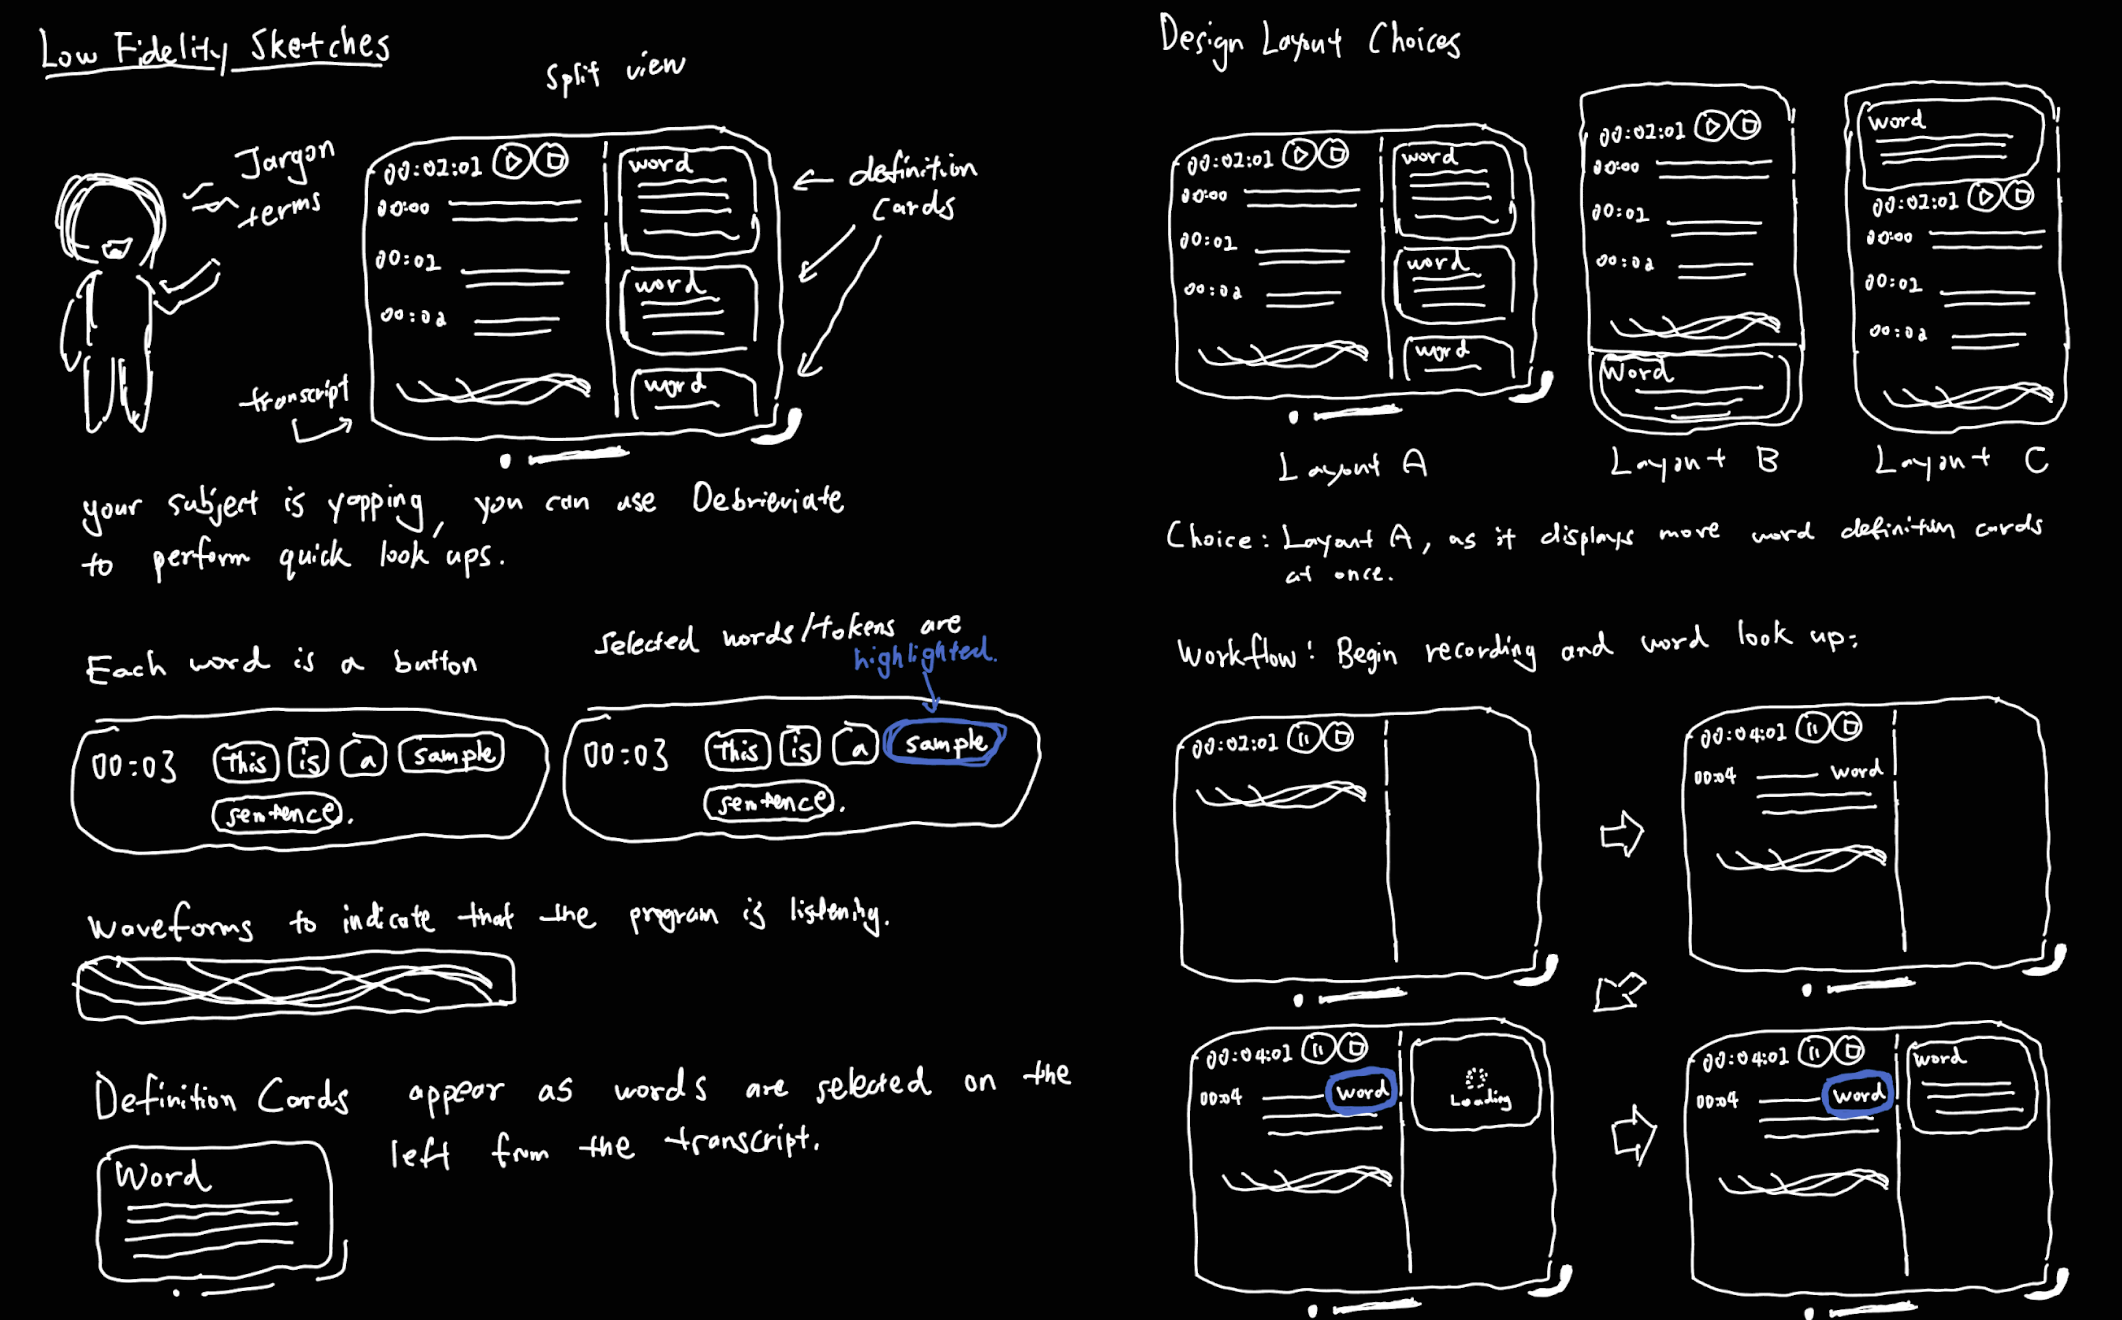 Low Fidelity Sketches
Split view
Jargon
terms
00:02:01
00:00
00:01
00:02
word
word
word
definition
cards
transcript
your subject is yapping, you can use Debrieviate
to perform quick look ups.
Each word is a button
00:03 this is a sample
sentence.
Selected words/tokens are
highlighted.
00:03 this is a sample
sentence.
Waveforms to indicate that the program is listening.
Definition Cards appear as words are selected on the
left from the transcript.
Word
Design Layout Choices
00:02:01
00:00
00:01
00:02
word
word
word
Layout A
00:02:01
00:00
00:01
00:02
Word
Layout B
word
00:02:01
00:00
00:01
00:02
Layout C
Choice: Layout A, as it displays more word definition cards
at once.
Workflow: Begin recording and word look up:
00:02:01
00:04:01
00:04 word
00:04:01
00:04 word
Loading
00:04:01
00:04 word
word